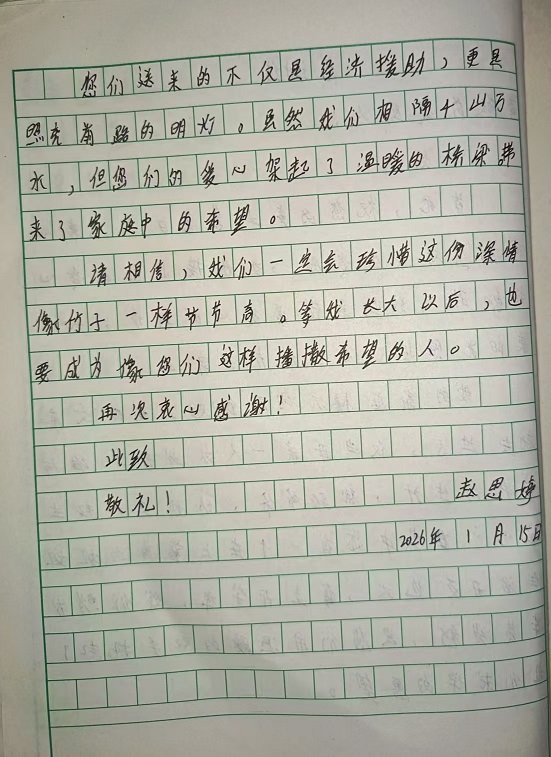 您们送来的不仅是经济援助，更是
照亮前路的明灯。虽然我们相隔千山万
水，但您们的爱心架起了温暖的桥梁带
来了家庭中的希望。
请相信，我们一定会珍惜这份深情
像竹子一样节节高。等我长大以后，也
要成为像您们这样播撒希望的人。
再次衷心感谢！
此致
敬礼！ 赵思婷
2026年1月15日